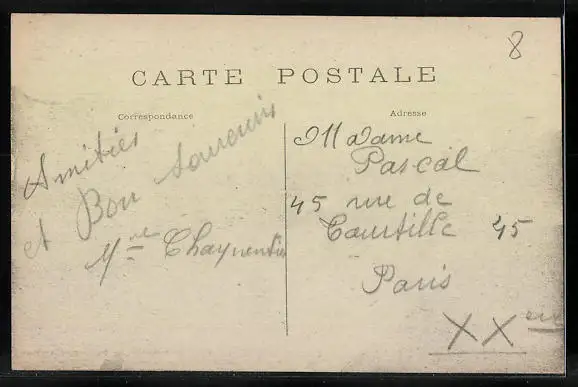 8
CARTE POSTALE
Correspondance
Adresse
Amitiés
et Bon souvenir
Mme Charpentier
Madame
Pascal
45 rue de
Tourtille 45
Paris
XXem